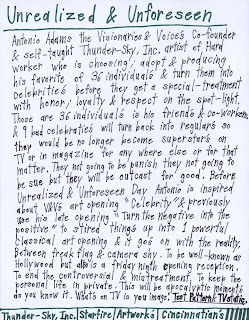 Unrealized & Unforeseen
Antonio Adams the Visionaries & Voices Co-founder
& self-taught Thunder-Sky, Inc. artist of Hard
worker who is choosing, adopt & producing
his favorite of 36 individuals & turn them into
celebrities before they get a special-treatment
with honor, loyalty & respect on the spot-light.
Those are 36 individuals is his friends & co-workers
& 9 bad celebraties will turn back into regulars so
they would be no longer become superstars on
TV or in magazine for any where else or the that
matter. They not going to be banish they not going to
be sue but they will be outcast for good. Before
Unrealized & Unforeseen Day Antonio is inspired
about V&V's art opening "Celebrity" & previously
use his late opening "Turn the negative into the
positive" to stired things up into 1 powerful
Classical art opening & it goes on with the reality
between freak flag & camera shy. To be well-known as
Hollywood but also a friday night opening reception.
To end the controversial & mistreatment. To keep the
personal life in private. This will be apocalyptic moments
do you know it. What's on TV is you image. Test Pattern & TV static.
Thunder-Sky, Inc. | Starfire | Artworks | Cincinnati's